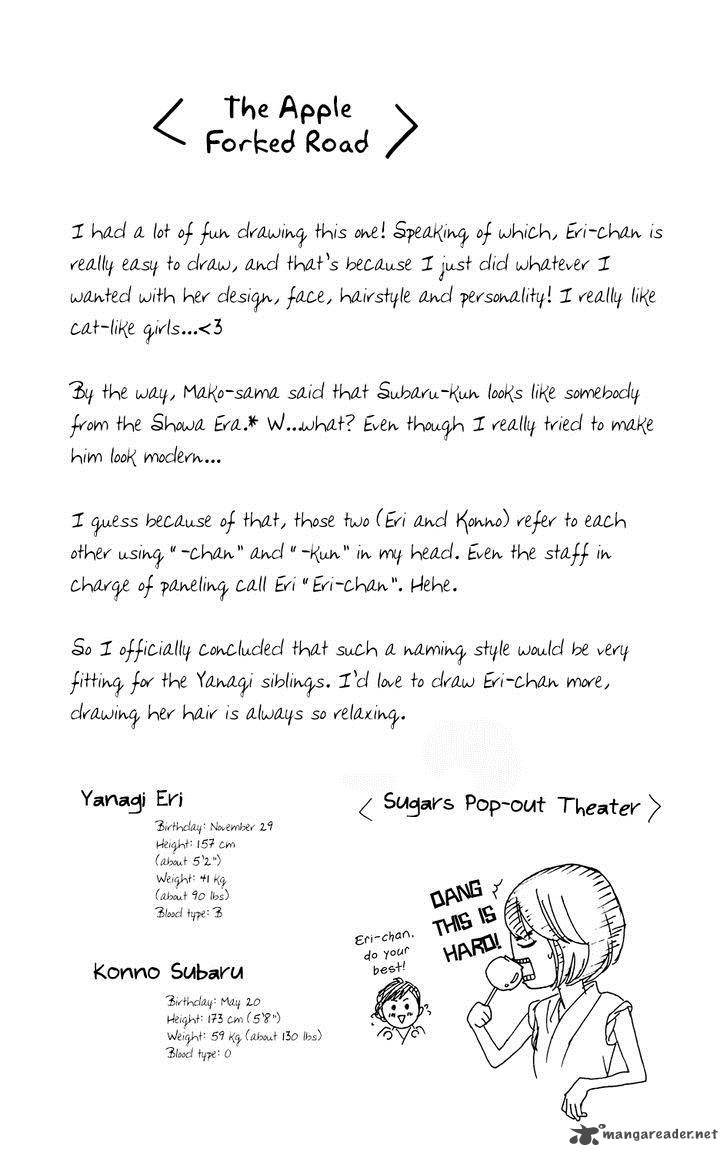 The Apple
Forked Road
I had a lot of fun drawing this one! Speaking of which, Eri-chan is
really easy to draw, and that's because I just did whatever I
wanted with her design, face, hairstyle and personality! I really like
cat-like girls...<3
By the way, Mako-sama said that Subaru-kun looks like somebody
from the Showa Era.* W...what? Even though I really tried to make
him look modern...
I guess because of that, those two (Eri and Konno) refer to each
other using "-chan" and "-kun" in my head. Even the staff in
charge of paneling call Eri "Eri-chan". Hehe.
So I officially concluded that such a naming style would be very
fitting for the Yanagi siblings. I'd love to draw Eri-chan more,
drawing her hair is always so relaxing.
Yanagi Eri
Birthday: November 29
Height: 157 cm
(about 5'2")
Weight: 41 kg
(about 90 lbs)
Blood type: B
Konno Subaru
Birthday: May 20
Height: 173 cm (5'8")
Weight: 59 kg (about 130 lbs)
Blood type: O
Sugars Pop-out Theater
DANG
THIS IS
HARD!
Eri-chan,
do your
best!
mangareader.net